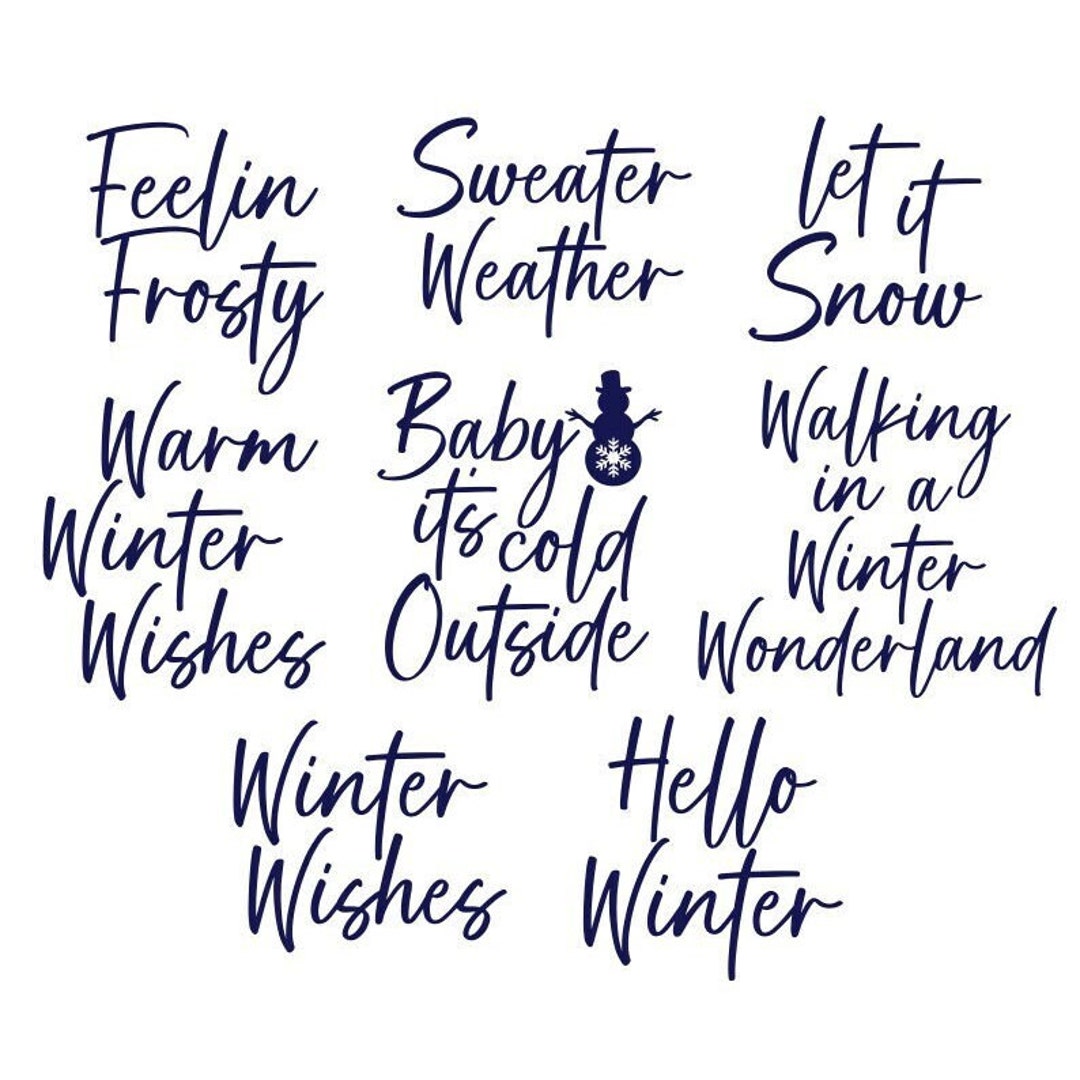 Feelin
Frosty
Sweater
Weather
let it
Snow
Warm
Winter
Wishes
Baby
it's cold
Outside
Walking
in a
Winter
Wonderland
Winter
Wishes
Hello
Winter